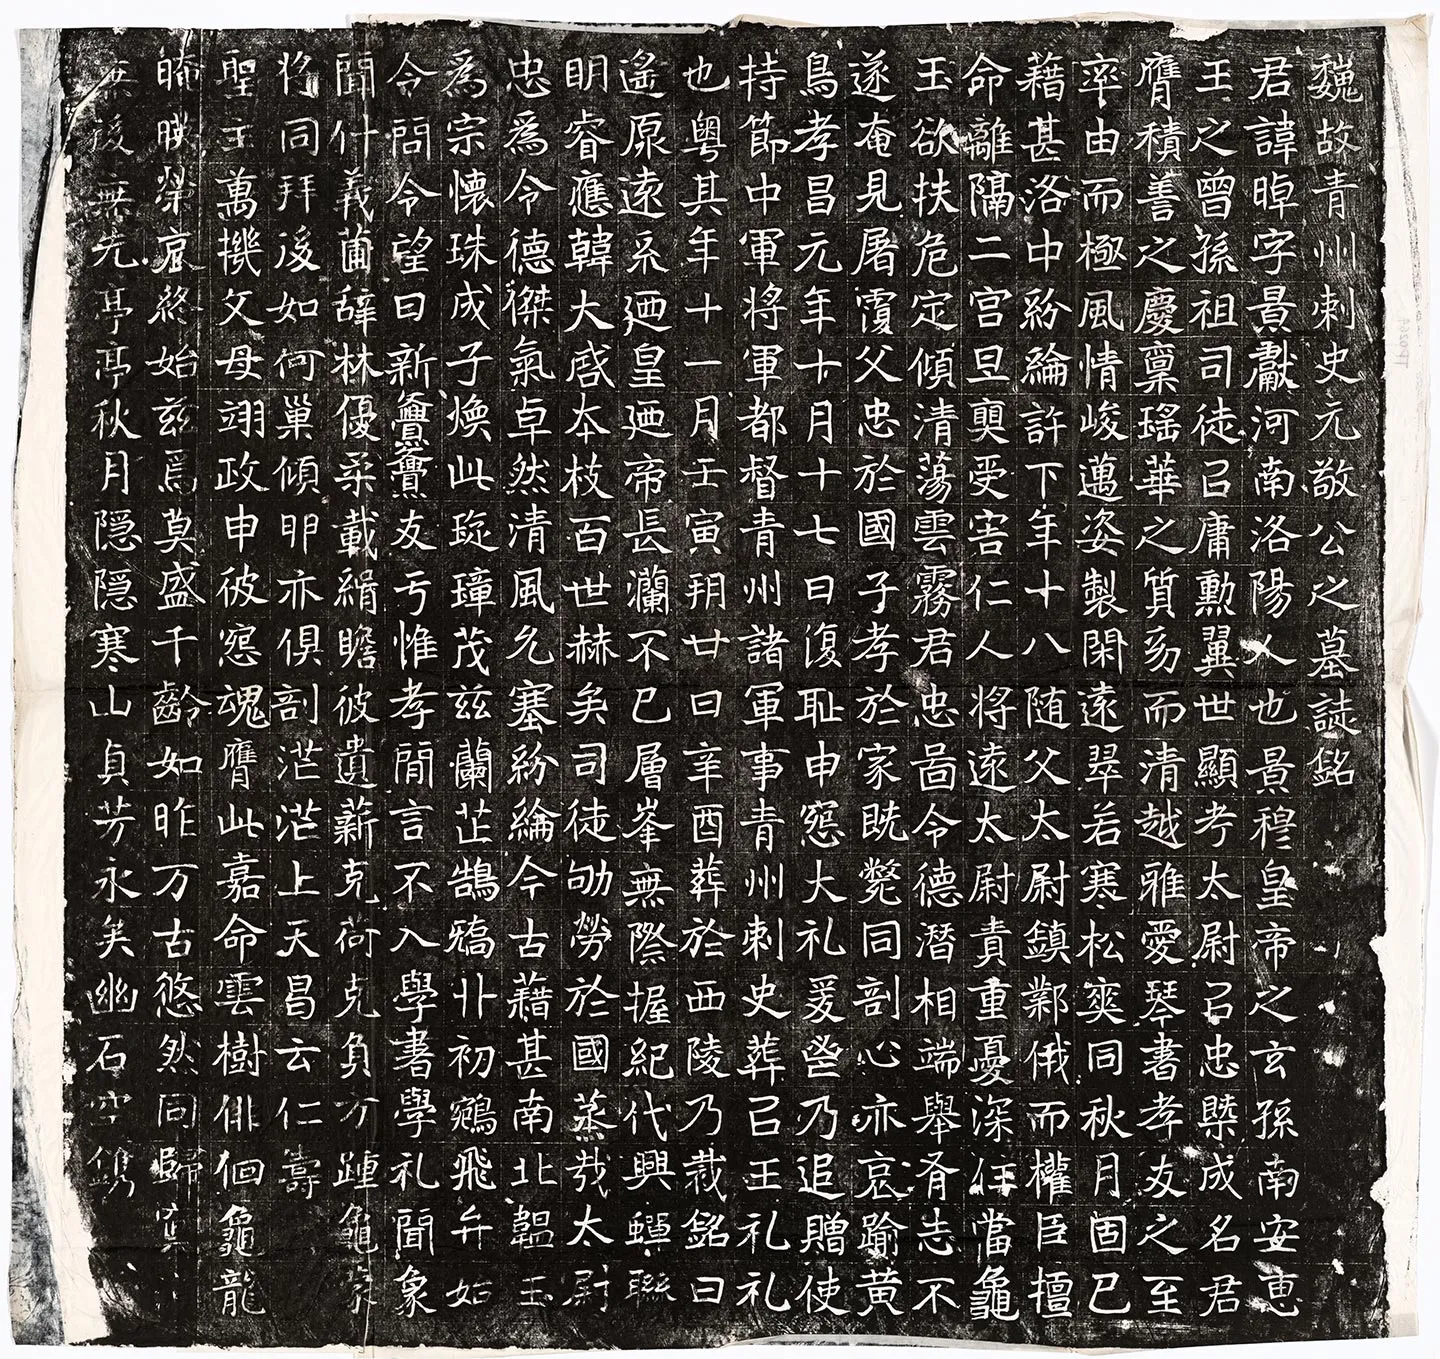 魏故青州刺史元敬公之墓誌銘
君諱晫字景獻河南洛陽人也景穆皇帝之玄孫南安惠
王之曾孫祖司徒㠯庸勳翼世顯考太尉㠯忠槩成名君
膺積善之慶稟瑤華之質㓜而清越雅愛琴書孝友之至
率由而極風情峻邁姿製閑遠翠若寒松奕同秋月固已
藉甚洛中紛綸許下年十八随父太尉鎮鄴俄而權臣擅
命離隔二宫旦奭受害仁人將遠太尉責重憂深任當龜
玉欲扶危定傾清蕩雲霧君忠啚令德潛相端舉胥志不
遂奄見屠覆父忠於國子孝於家既斃同剖心亦哀踰黄
鳥孝昌元年十月十七日復耻申寃大礼爰啓乃追贈使
持節中軍將軍都督青州諸軍事青州刺史葬㠯王礼礼
也粤其年十一月壬寅朔廿日辛酉葬於西陵乃裁銘曰
遥原遠系迺皇迺帝長瀾不已層峯無際握紀代興蟬聯
明睿應韓大啓本枝百世赫矣司徒劬勞於國蒸哉太尉
忠為令德傑氣卓然清風允塞紛綸今古藉甚南北韞玉
為宗懷珠成子煥此琁璋茂兹蘭芷鵠鷮丱初鵷飛弁始
令問令望日新亹亹友亏惟孝閒言不入學書學礼聞象
聞什義莆辭林優柔載緝瞻彼遺薪克荷克負方踵龜豪
將同拜後如何巢傾卵亦俱剖茫茫上天昌云仁壽
聖主萬機文母翊政申彼寃魂膺此嘉命雲樹俳佪龜龍
晻暎榮哀終始兹焉莫盛千齡如昨万古悠然同歸
無後無先亭亭秋月隱隱寒山貞芳永矣幽石空鐫